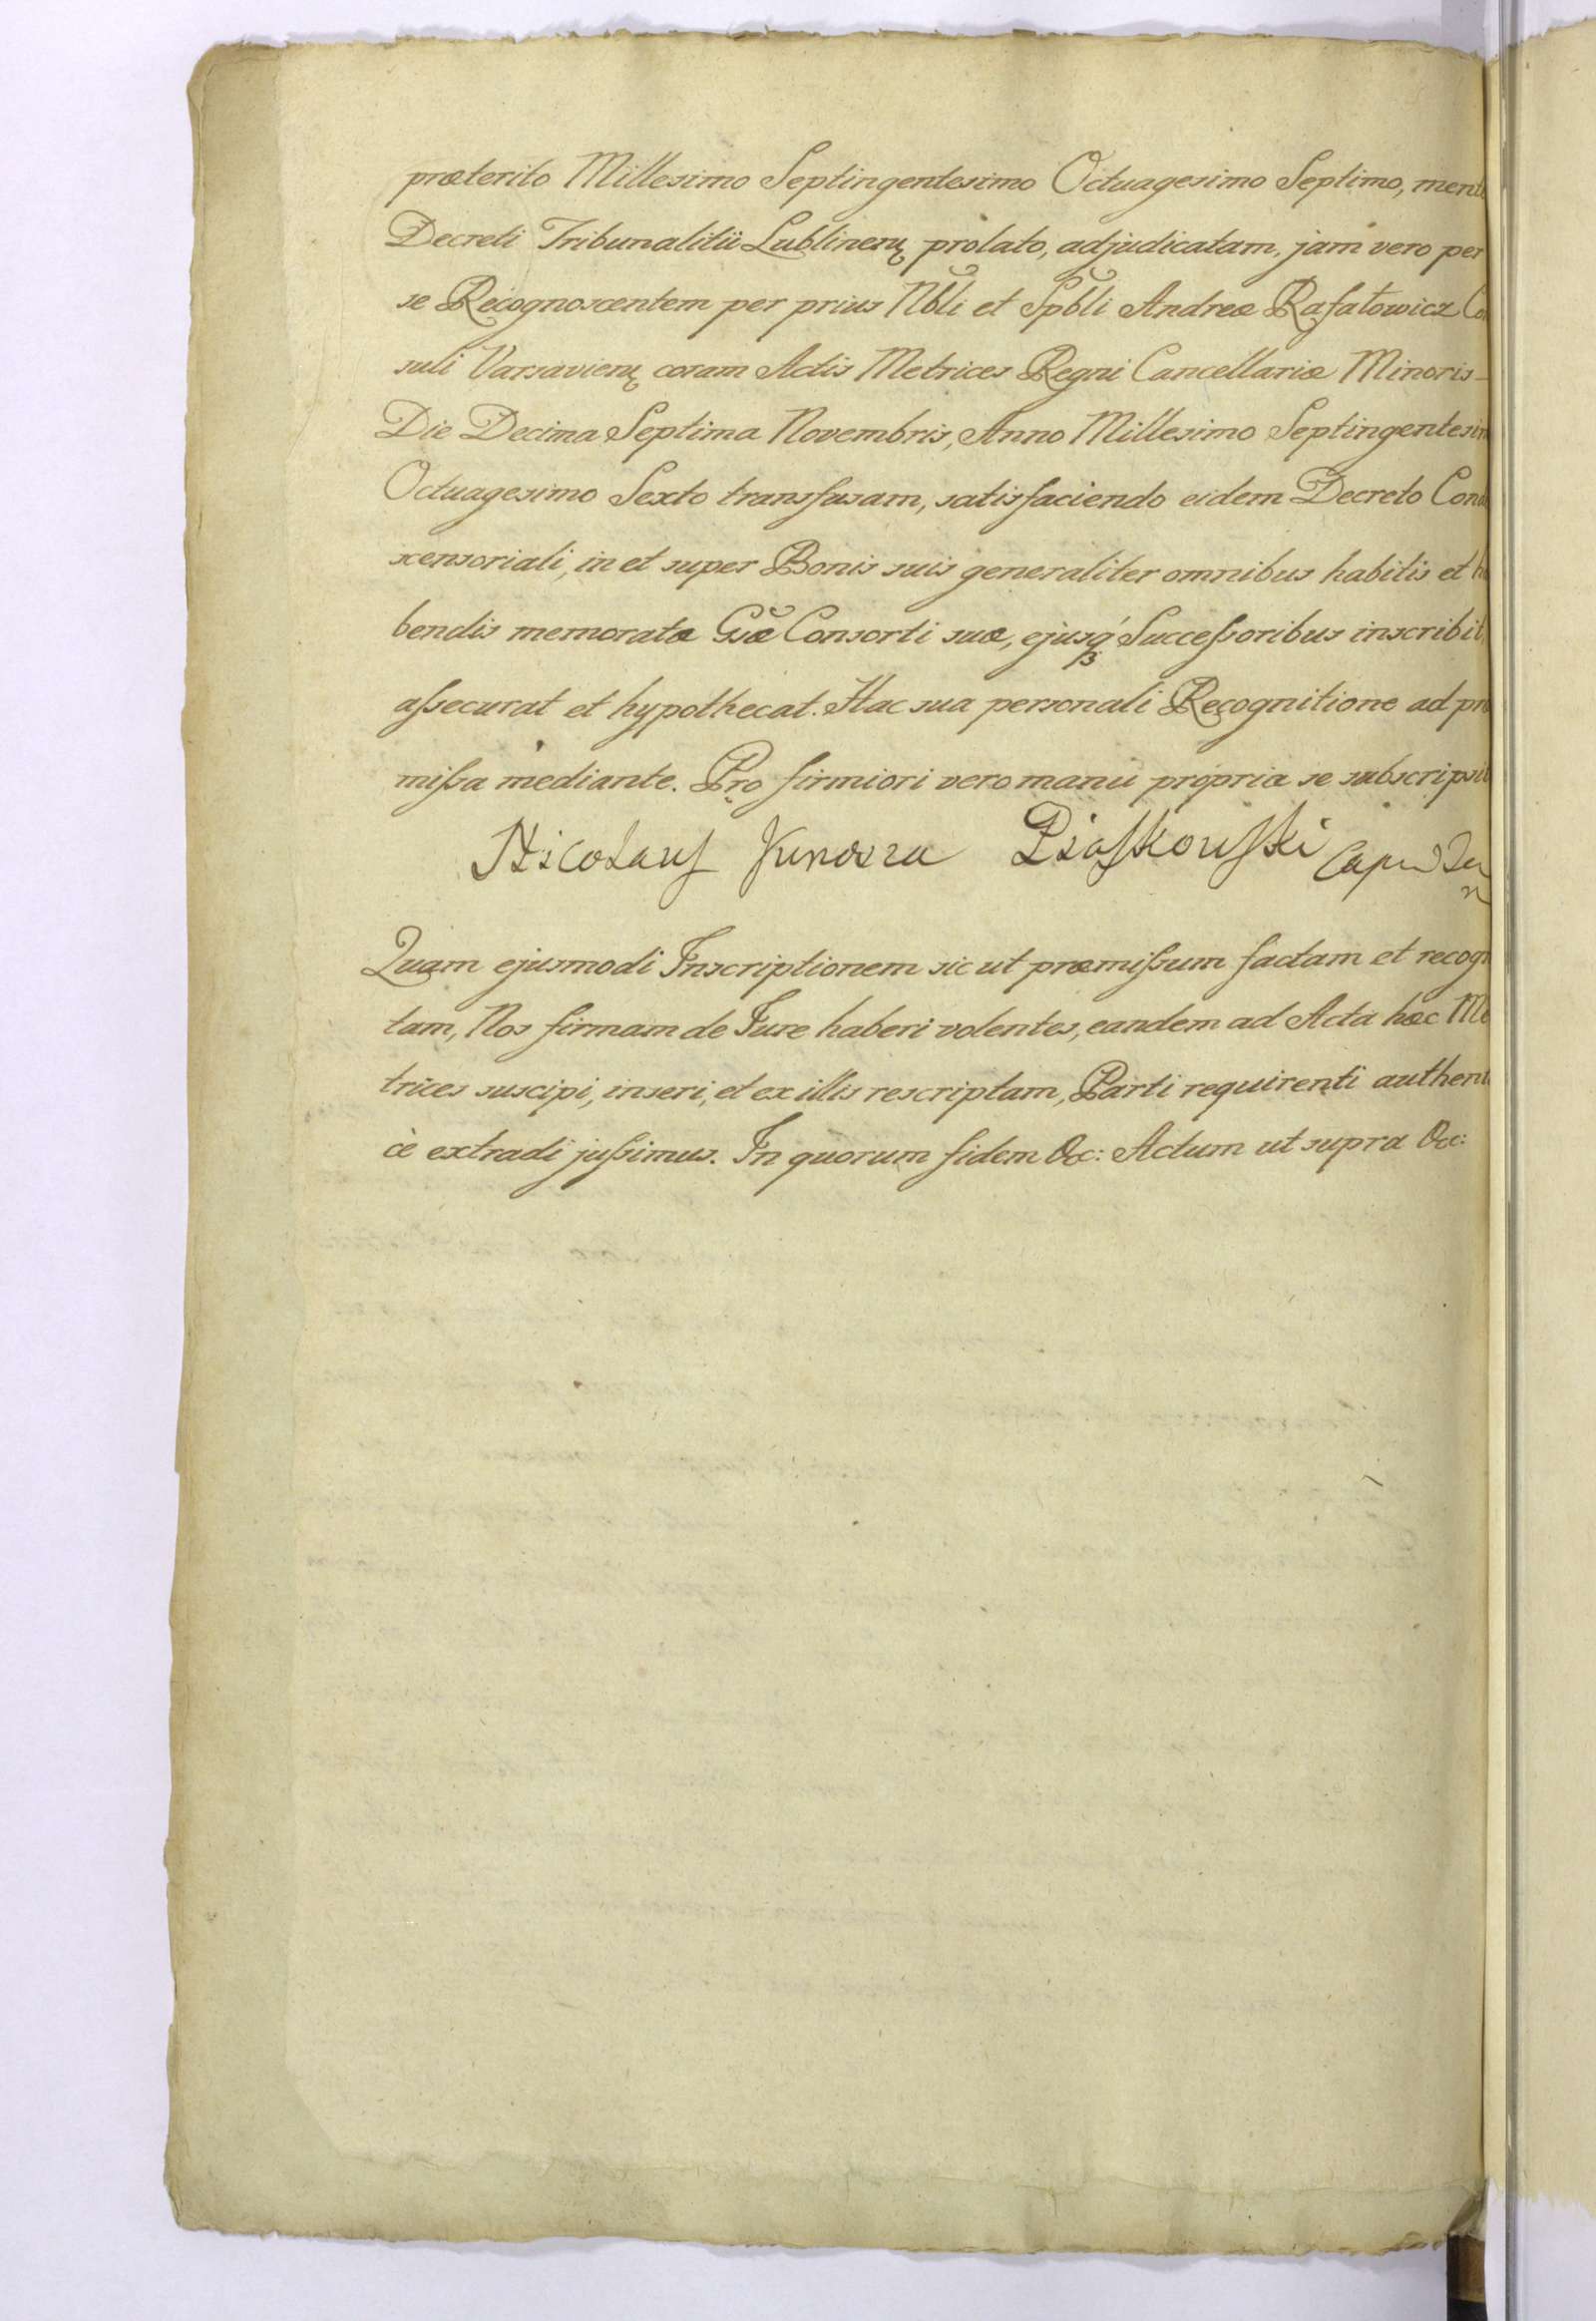 præterito Millesimo Septingentesimo Octuagesimo Septimo, ment
Decreti Tribunalitii Lublinen̄ prolato, adjudicatam, jam vero per
se Recognoscentem per prius Nbli et Spbli Andreæ Rafałowicz Co
suli Varsavien̄ coram Actis Metrices Regni Cancellariæ Minoris
Die Decima Septima Novembris, Anno Millesimo Septingentesim
Octuagesimo Sexto transfusam, satisfaciendo eidem Decreto Con
scensoriali, in et super Bonis suis generaliter omnibus habitis et ha
bendis memoratæ Gsæ Consorti suæ, ejusq́ Successoribus inscribit,
assecurat et hypothecat. Hac sua personali Recognitione ad præ
missa mediante. Pro firmiori vero manu propria se subscripsit
Nicolaus Junosza Piaskowski
Quam ejusmodi Inscriptionem sic ut præmissum factam et recogn
tam, Nos firmam de Jure haberi volentes, eandem ad Acta hæc Me
trices suscipi, inseri, et ex illis rescriptam, Parti requirenti authenti
cè extradi jussimus. In quorum fidem &c: Actum ut supra &c: